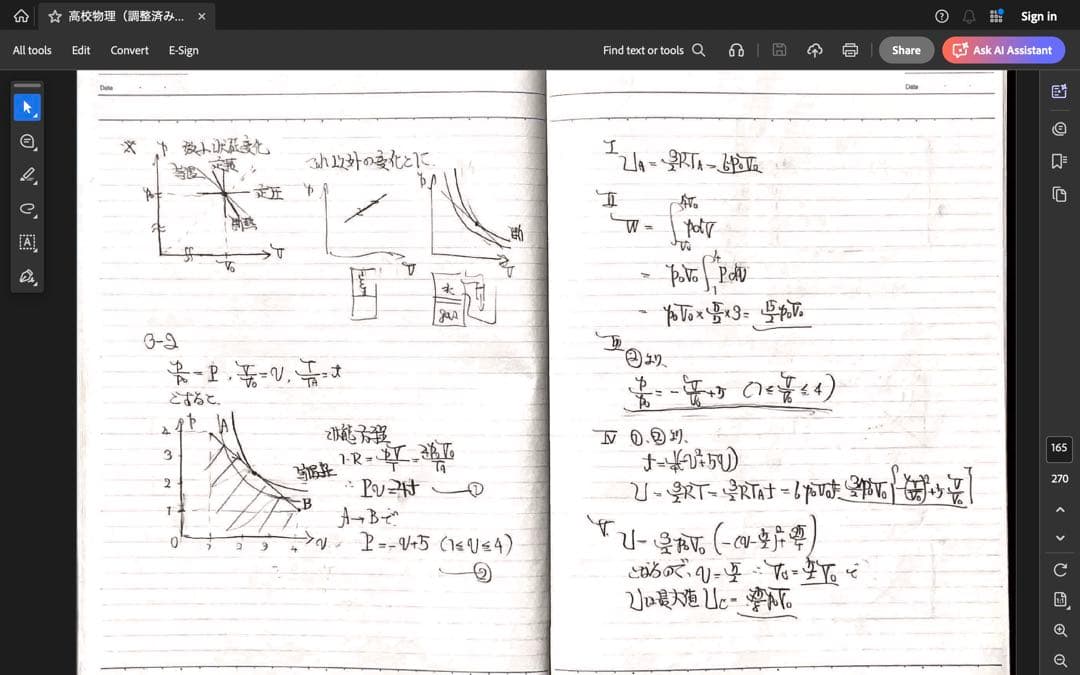 高校物理（調整済み...
Sign in
All tools Edit Convert E-Sign
Find text or tools
Share
Ask AI Assistant
Date
※ p 状態変化
等温 定積
定圧
断熱
p₀
V₀
V
これ以外の変化とに
p
V
p
断
V
水
gas
3-2
p/p₀ = P, V/V₀ = v, T/T_A = t
とすると、
p
A
4
3
2
1
0
1 2 3 4 v
B
等温線
状態方程
1·R = pV/T = 4p₀V₀/T_A
∴ Pv = 4t ―①
A→Bで
P = -v+5 (1≤v≤4)
―②
Date
I
U_A = 3/2 RT_A = 6p₀V₀
II
W = ∫_{V₀}^{4V₀} pdV
= p₀V₀ ∫_1^4 P dv
= p₀V₀ × 5/2 × 3 = 15/2 p₀V₀
III
②より、
p/p₀ = -V/V₀ + 5 (1 ≤ V/V₀ ≤ 4)
IV ①、②より、
t = 1/4(-v²+5v)
U = 3/2 RT = 3/2 RT_A t = 6p₀V₀t = 3/2 p₀V₀ {-(V/V₀)² + 5 V/V₀}
V
U = 3/2 p₀V₀ (-(v-5/2)² + 25/4)
となるので、v = 5/2 ∴ V = 5/2 V₀ で
Uは最大値 U_C = 75/8 p₀V₀
165
270